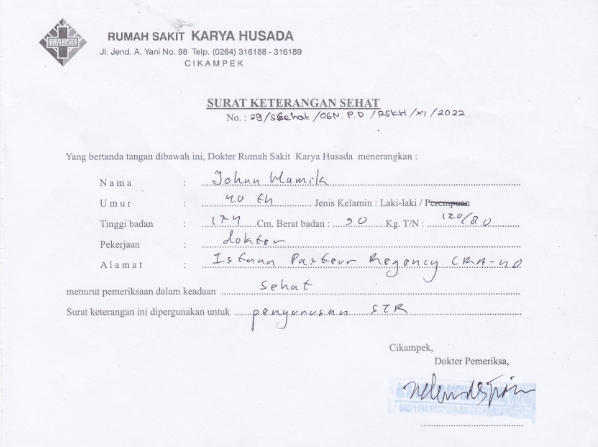 RUMAH SAKIT KARYA HUSADA
Jl. Jend. A. Yani No. 98 Telp. (0264) 316188 - 316189
CIKAMPEK
SURAT KETERANGAN SEHAT
No. : 29/SSehat/OGN.P.D/RSKH/XI/2022
Yang bertanda tangan dibawah ini, Dokter Rumah Sakit Karya Husada menerangkan :
Nama : Johan Mamik
Umur : 40 th Jenis Kelamin : Laki-laki / Perempuan
Tinggi badan : 174 Cm. Berat badan : 90 Kg. T/N : 120/80
Pekerjaan : dokter
Alamat : Istana Pasteur Regency
menurut pemeriksaan dalam keadaan sehat
Surat keterangan ini dipergunakan untuk pengurusan STR
Cikampek,
Dokter Pemeriksa,